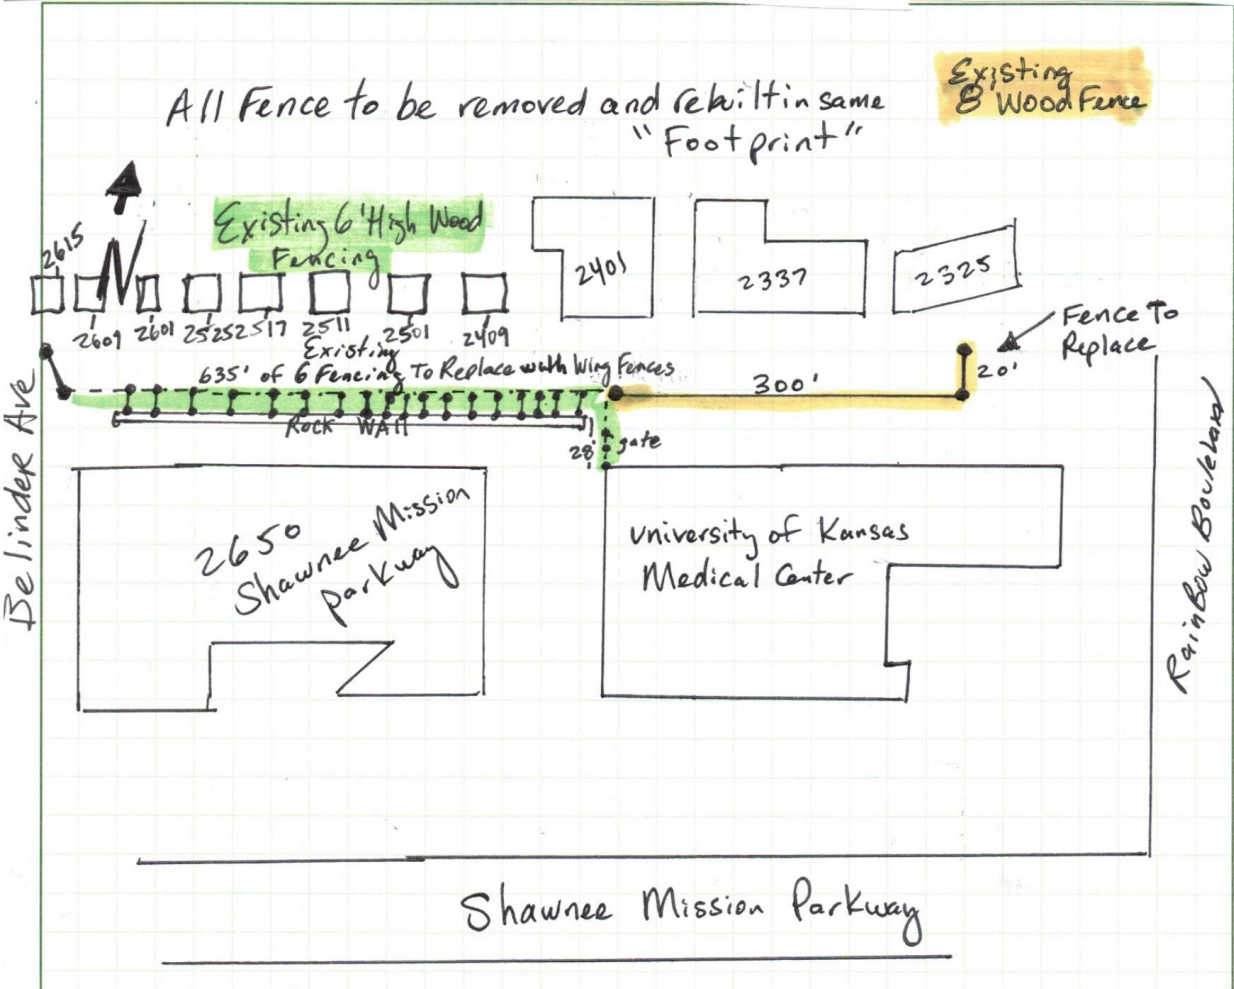 All Fence to be removed and rebuilt in same
"Footprint"
Existing
8 Wood Fence
Existing 6' High Wood
Fencing
N
2615
2609
2601
2525
2517
2511
2501
2409
2401
2337
2325
Fence To
Replace
Existing
635' of 6 Fencing To Replace with Wing Fences
300'
20'
Rock Wall
28'
gate
Belinder Ave
2650
Shawnee Mission
Parkway
University of Kansas
Medical Center
RainBow Boulevard
Shawnee Mission Parkway